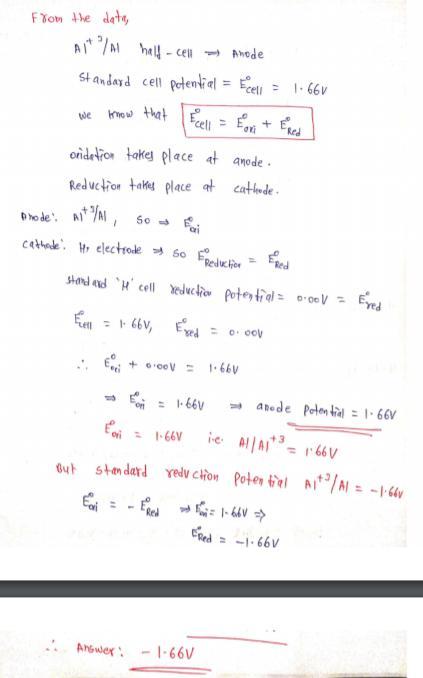 From the data,
Al⁺³/Al half-cell ⇒ Anode
Standard cell potential = E°cell = 1.66V
we know that E°cell = E°oxi + E°Red
oxidation takes place at anode.
Reduction takes place at cathode.
Anode: Al⁺³/Al, so ⇒ E°oxi
Cathode: H₂ electrode ⇒ so E°Reduction = E°Red
standard 'H' cell reduction potential = 0.00V = E°red
E°cell = 1.66V, E°red = 0.00V
∴ E°oxi + 0.00V = 1.66V
⇒ E°oxi = 1.66V ⇒ anode Potential = 1.66V
E°oxi = 1.66V i.e. Al/Al⁺³ = 1.66V
But standard reduction Potential Al⁺³/Al = -1.66V
E°oxi = - E°Red ⇒ E°oxi = 1.66V ⇒
E°Red = -1.66V
∴ Answer: -1.66V